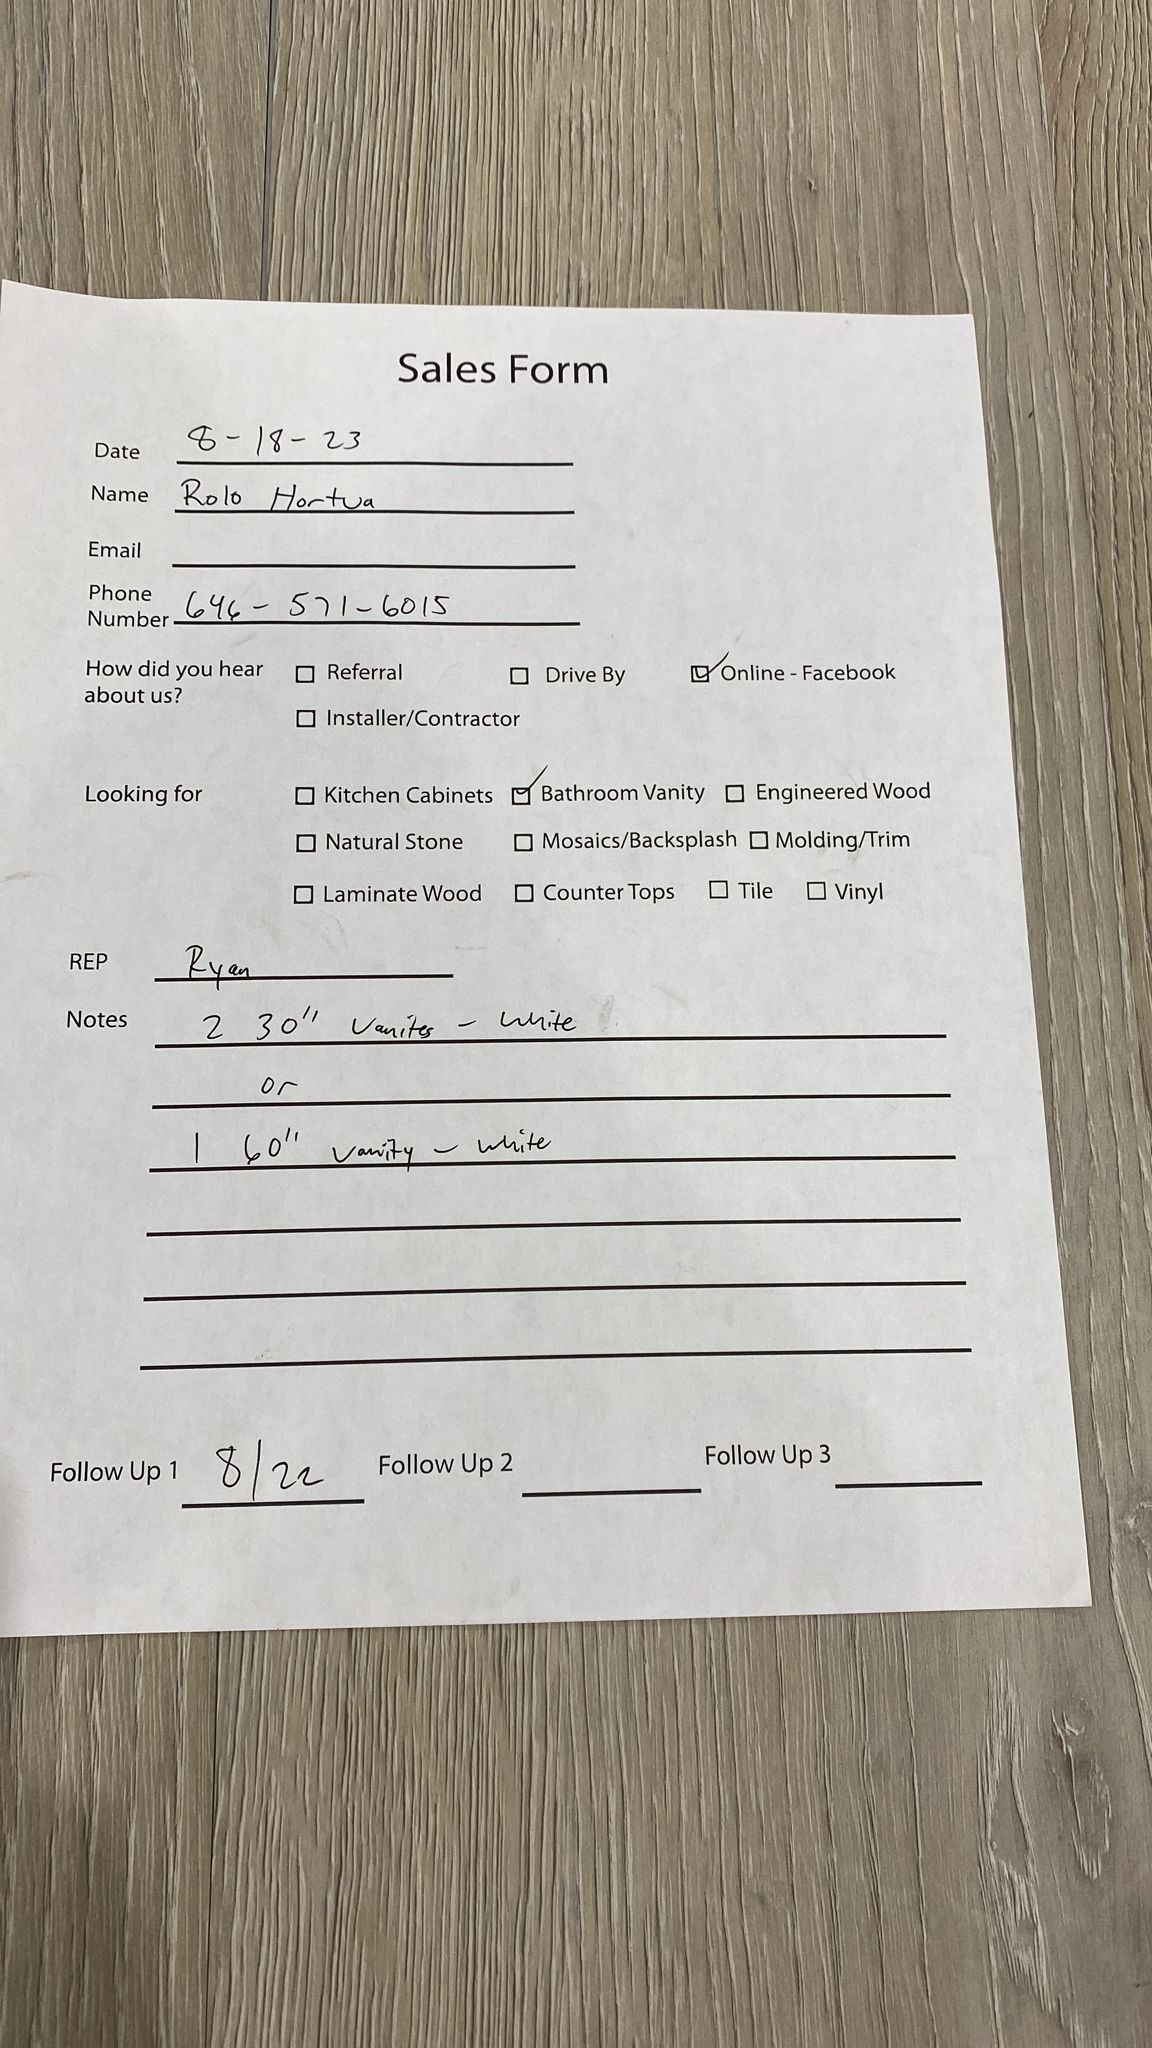 Sales Form
Date 8-18-23
Name Rolo Hortua
Email
Phone
Number 646-571-6015
How did you hear about us? ☐ Referral ☐ Drive By ☑ Online - Facebook
☐ Installer/Contractor
Looking for ☐ Kitchen Cabinets ☑ Bathroom Vanity ☐ Engineered Wood
☐ Natural Stone ☐ Mosaics/Backsplash ☐ Molding/Trim
☐ Laminate Wood ☐ Counter Tops ☐ Tile ☐ Vinyl
REP Ryan
Notes 2 30" Vanites - White
or
1 60" Vanity - White
Follow Up 1 8/22 Follow Up 2 Follow Up 3